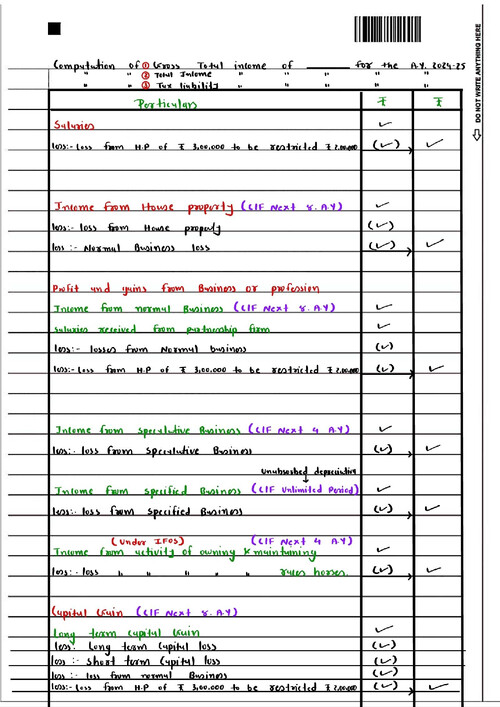 DO NOT WRITE ANYTHING HERE
Computation of ① Gross Total income of ______ for the A.Y. 2024-25
" " ② Total Income " " "
" " ③ Tax liability " " "
Particulars ₹ ₹
Salaries ✓
loss:- loss from H.P of ₹ 3,00,000 to be restricted ₹ 2,00,000 (✓) ✓
Income from House property (C/F Next 8. A.Y) ✓
loss:- loss from House property (✓)
loss :- Normal Business loss (✓) ✓
Profit and gains from Business or profession
Income from normal Business (C/F Next 8. A.Y) ✓
salaries received from partnership firm ✓
loss:- losses from Normal business (✓)
loss:- loss from H.P of ₹ 3,00,000 to be restricted ₹ 2,00,000 (✓) ✓
Income from speculative Business (C/F Next 4 A.Y) ✓
loss:- loss from Speculative Business (✓) ✓
Unabsorbed depreciation
Income from specified Business (C/F Unlimited Period) ✓
loss:- loss from specified Business (✓) ✓
(Under IFOS) (C/F Next 4 A.Y)
Income from activity of owning & maintaining ✓
loss:- loss " " " " " races horses. (✓) ✓
Capital Gain (C/F Next 8. A.Y)
Long term capital Gain ✓
loss: Long term Capital loss (✓)
loss :- short term Capital loss (✓)
loss :- loss from normal Business (✓)
loss:- loss from H.P of ₹ 3,00,000 to be restricted ₹ 2,00,000 (✓) ✓